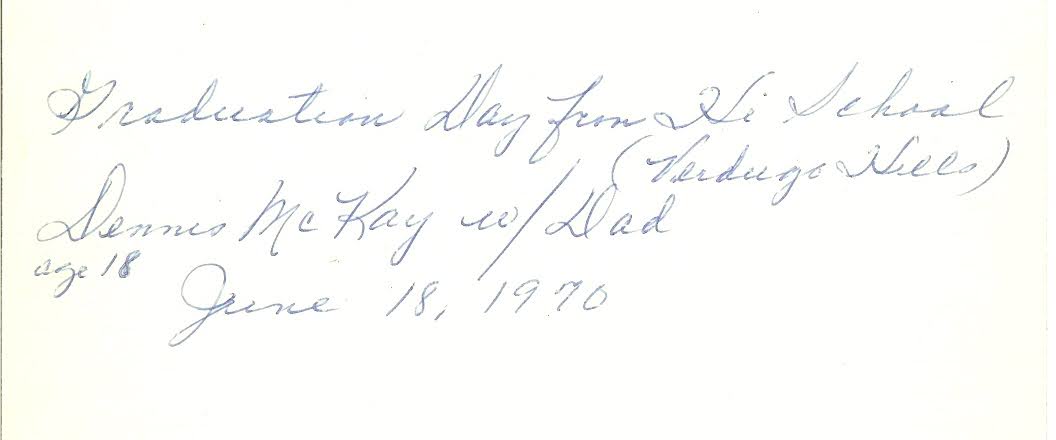 Graduation Day from Hi School
(Verdugo Hills)
Dennis McKay w/ Dad
age 18
June 18, 1970